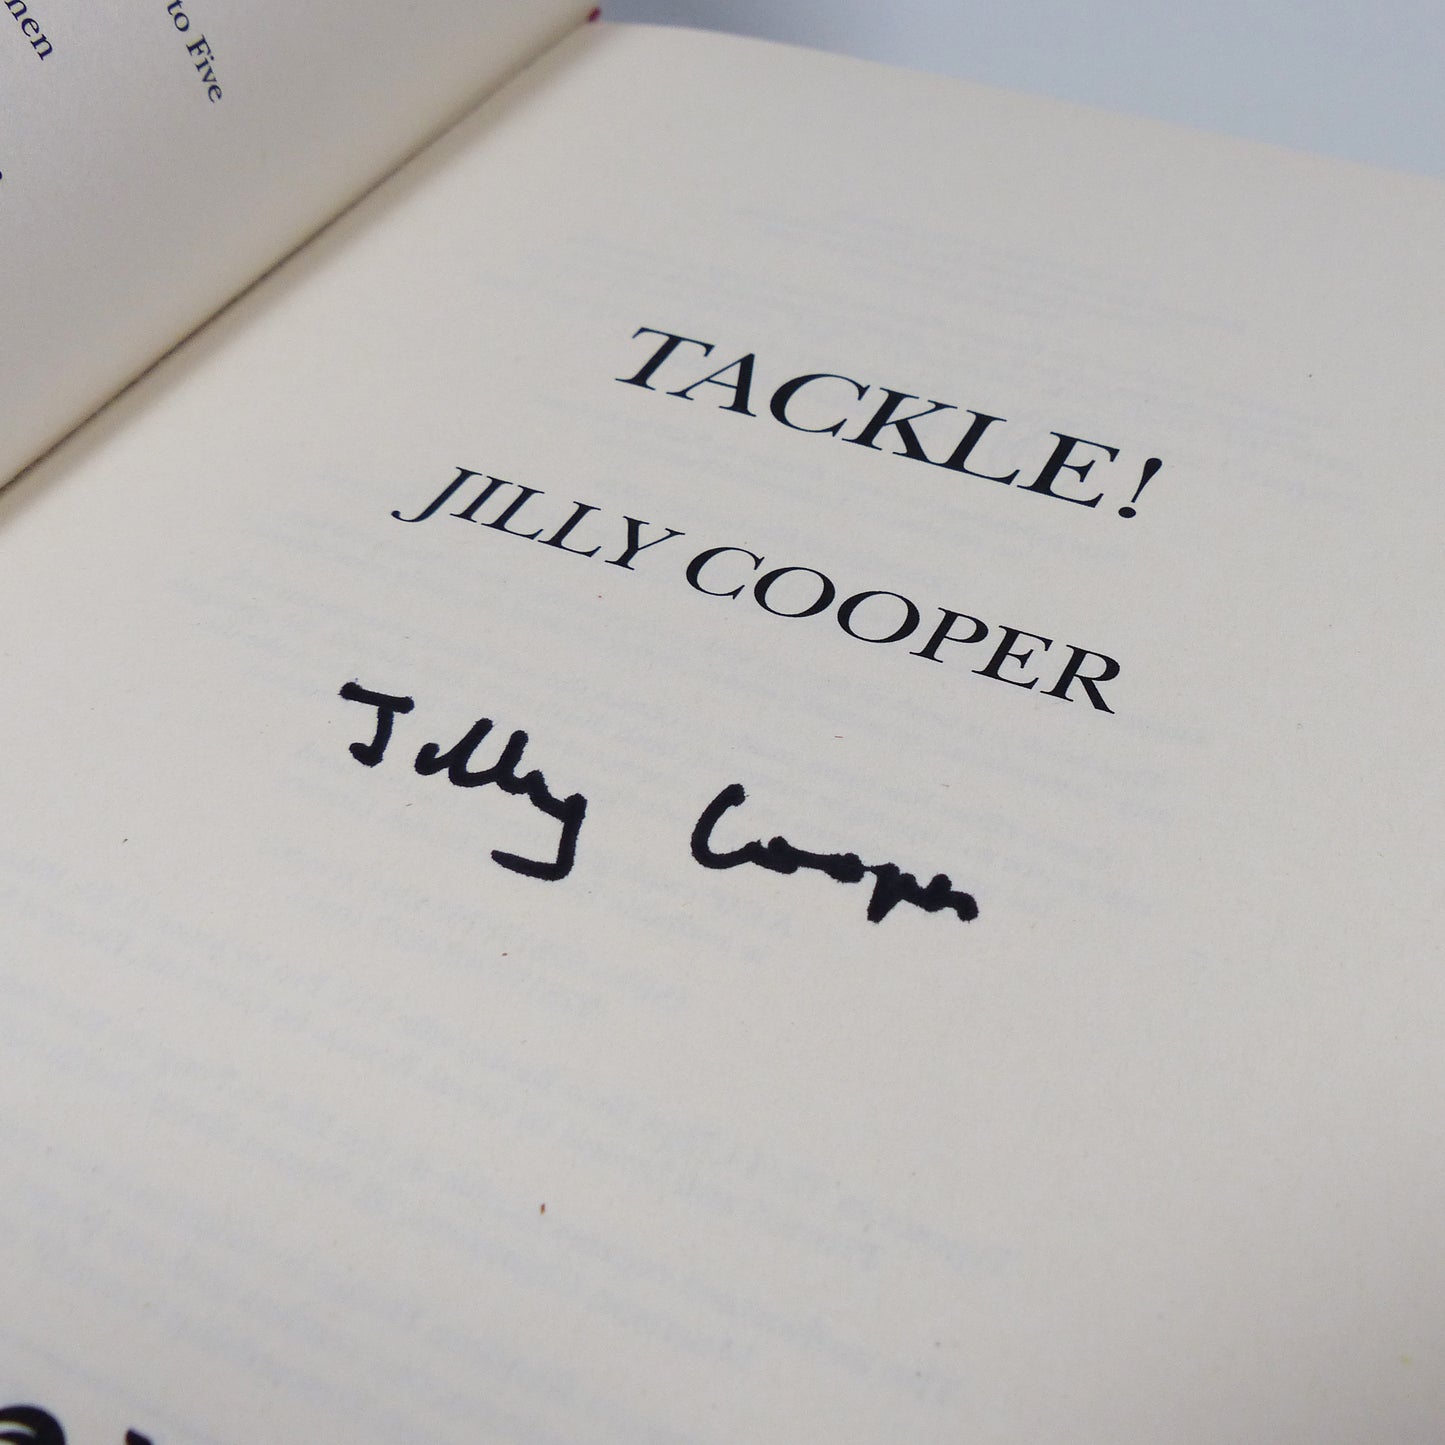 men
to Five
TACKLE!
JILLY COOPER
Jilly Cooper